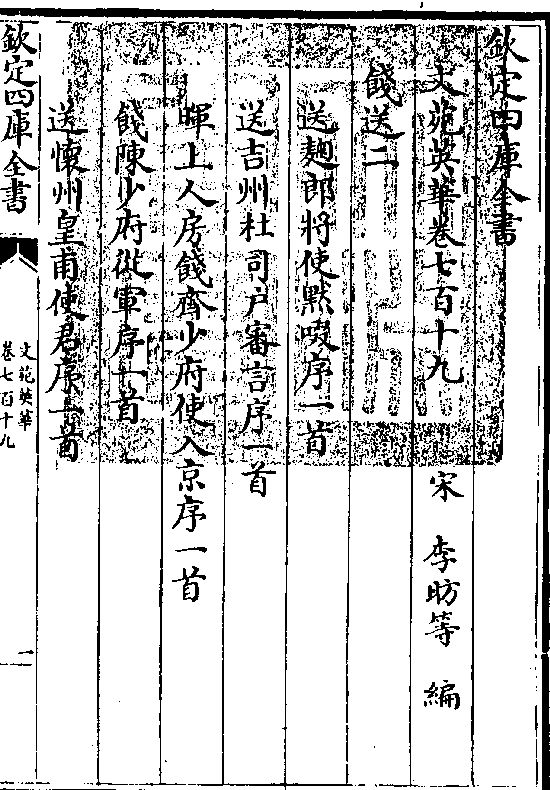 欽定四庫全書
文苑英華卷七百十九　宋　李昉等　編
餞送二
送麴郎將使黙啜序一首
送吉州杜司戶審言序一首
暉上人房餞齊少府使入京序一首
餞陳少府從軍序一首
送懷州皇甫使君序一首
欽定四庫全書
文苑英華
卷七百十九
一